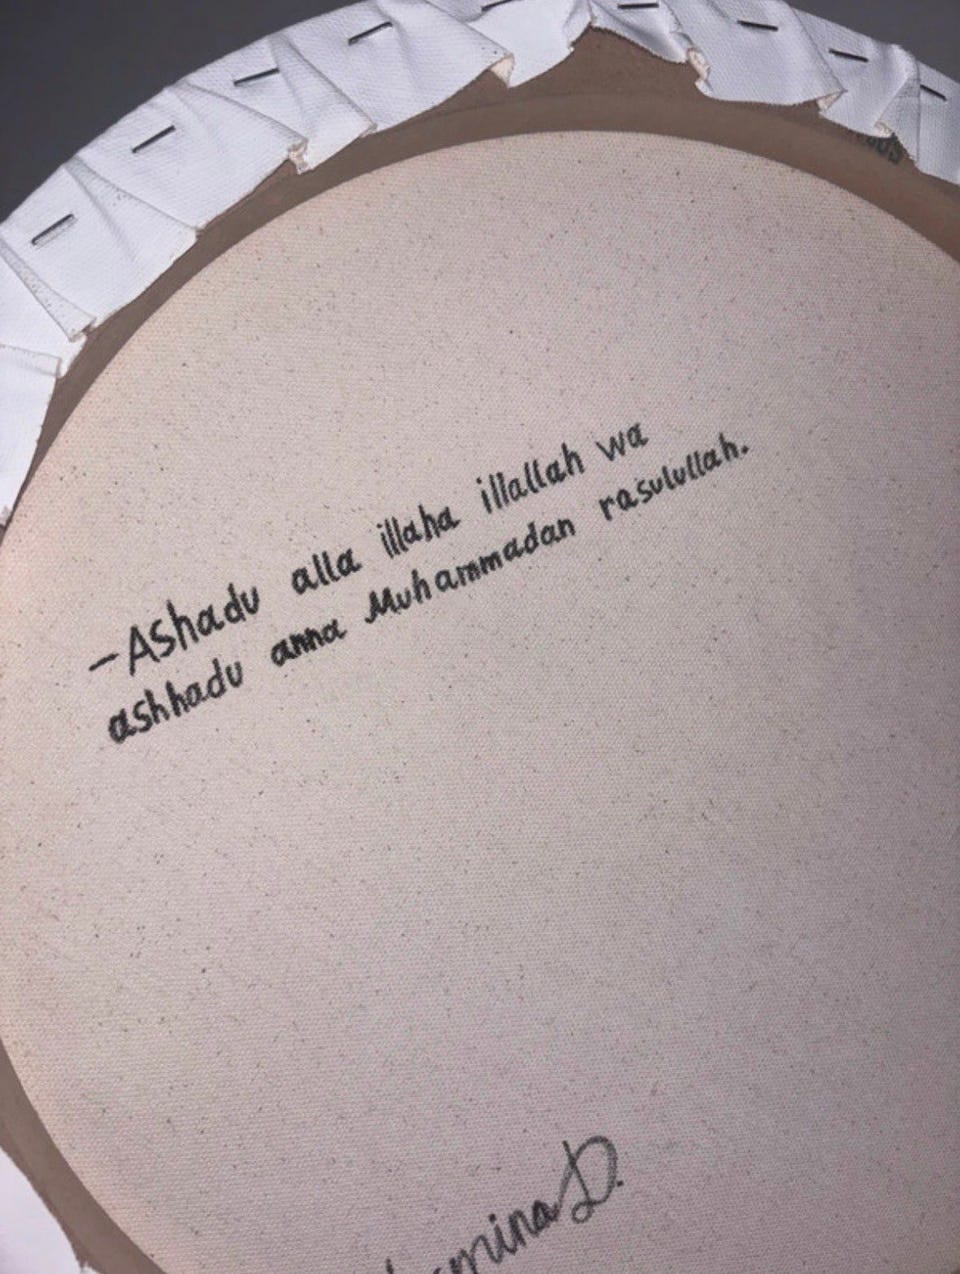 -Ashadu alla illaha illallah wa
ashhadu anna Muhammadan rasulullah.
D.